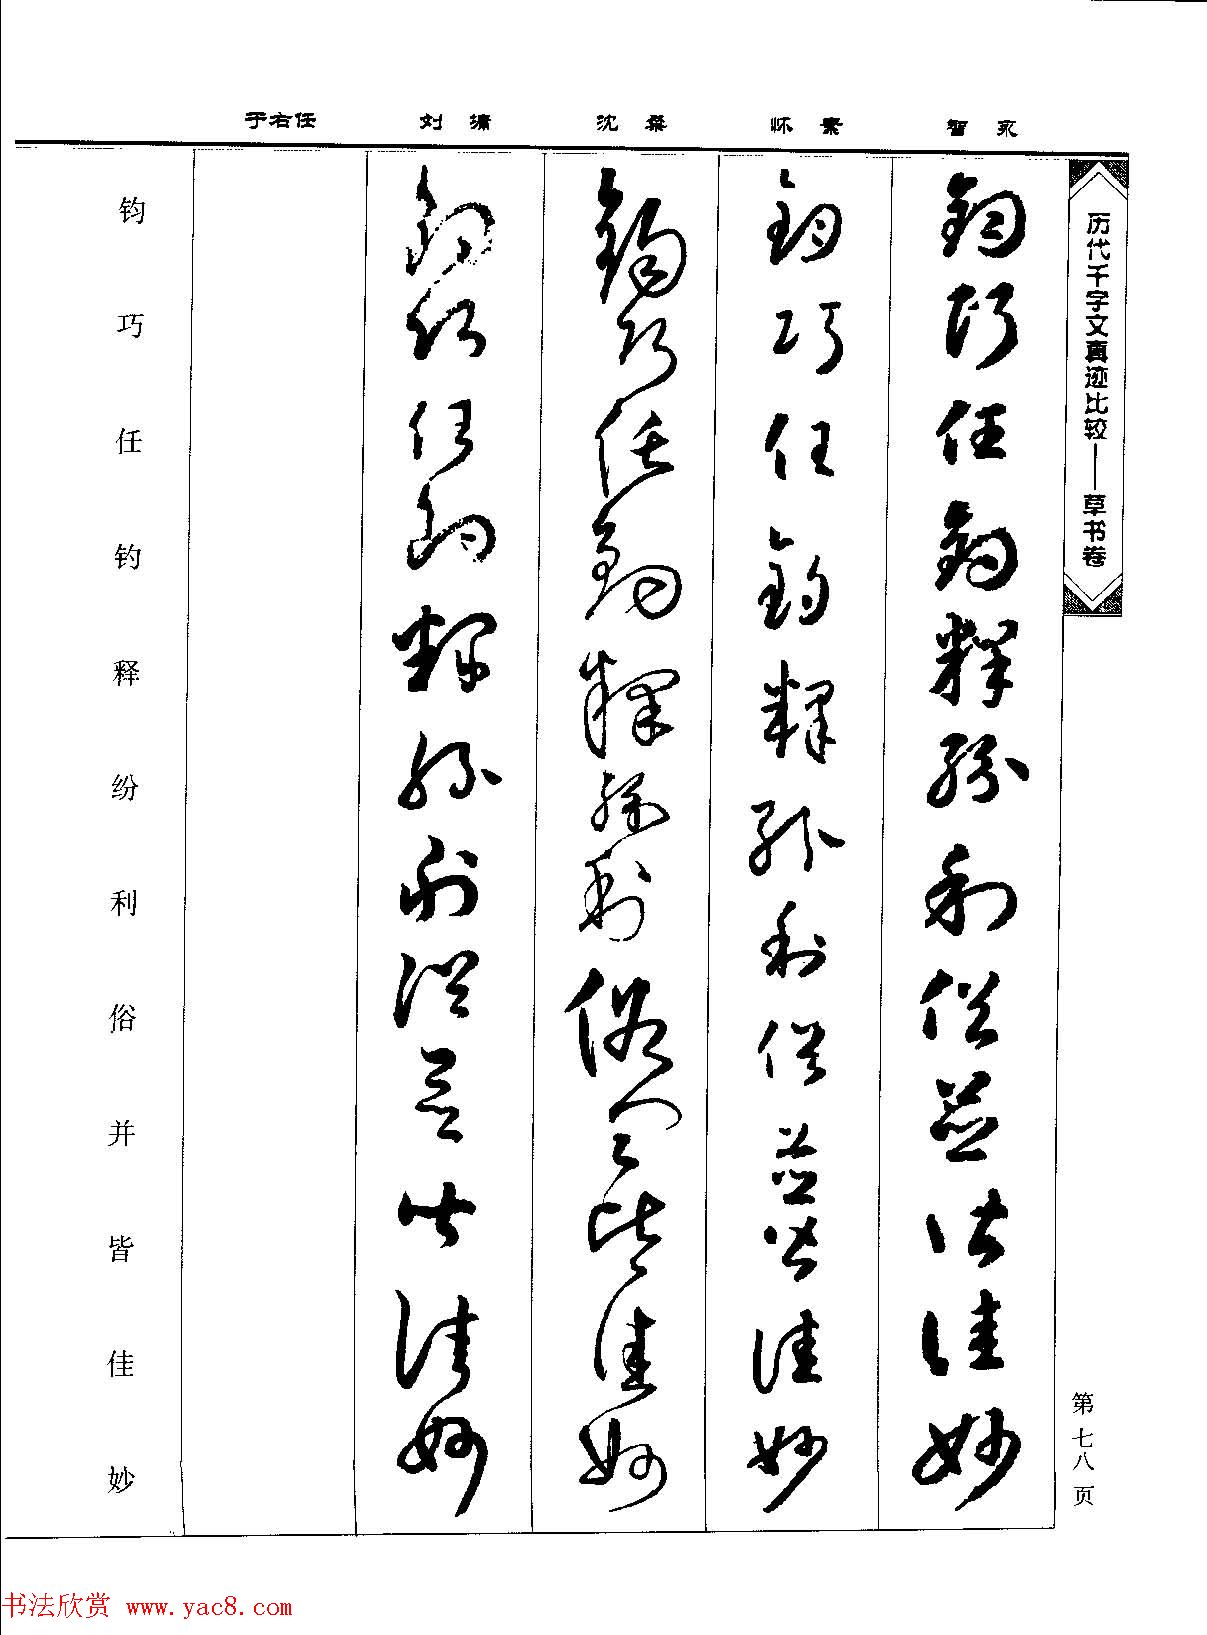 智永
怀素
沈粲
刘潇
于右任
历代千字文真迹比较——草书卷
钧巧任钓释纷利俗并皆佳妙
钧巧任钓释纷利俗并皆佳妙
钧巧任钓释纷利俗并皆佳妙
钧巧任钓释纷利俗并皆佳妙
钧巧任钓释纷利俗并皆佳妙
第七八页
书法欣赏 www.yac8.com